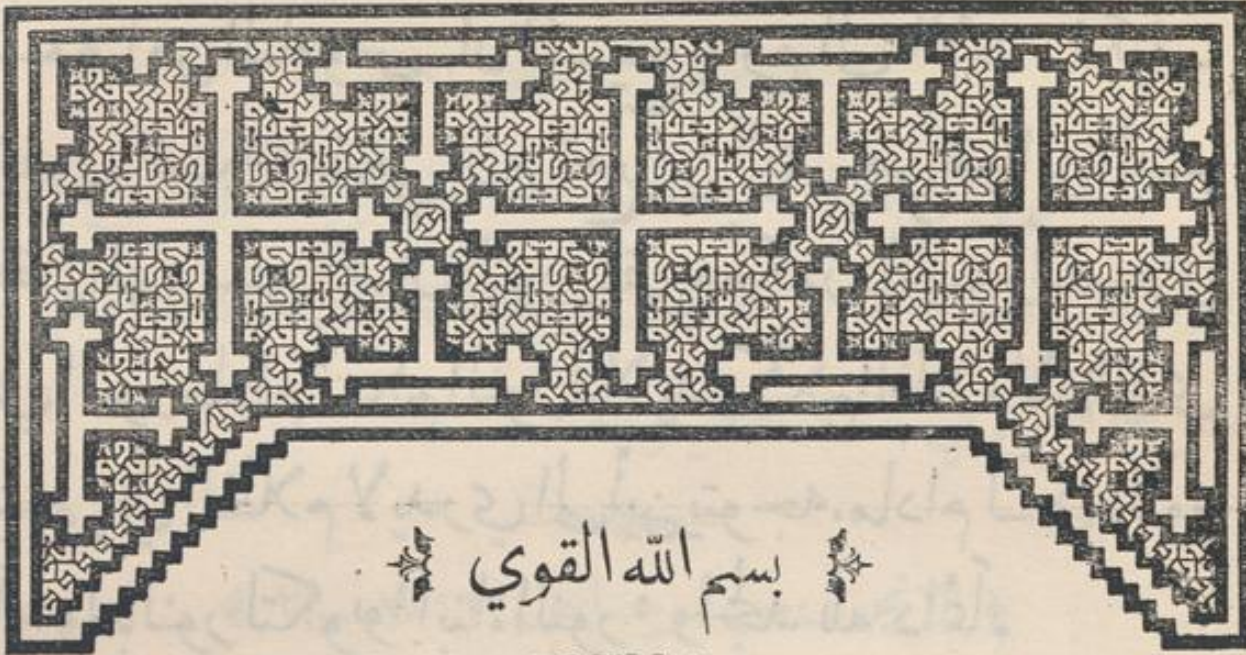 بسم الله القوي